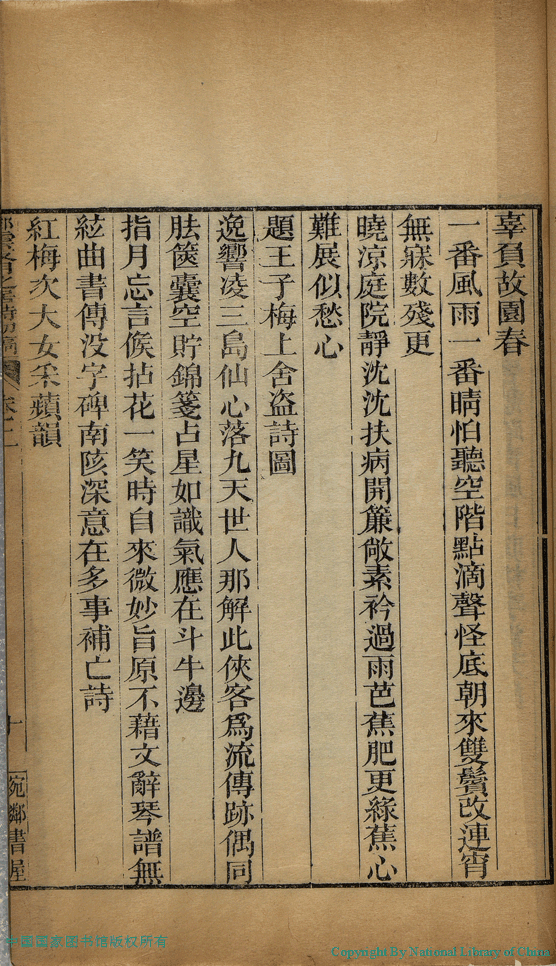 辜負故園春
一番風雨一番晴怕聽空階點滴聲怪底朝來雙鬢改連宵
無寐數殘更
曉涼庭院靜沈沈扶病開簾敞素衿過雨芭蕉肥更綠蕉心
難展似愁心
題王子梅上舍盜詩圖
逸響凌三島仙心落九天世人那解此俠客爲流傳跡偶同
胠篋囊空貯錦箋占星如識氣應在斗牛邊
指月忘言候拈花一笑時自來微妙旨原不藉文辭琴譜無
絃曲書傳没字碑南陔深意在多事補亡詩
紅梅次大女采蘋韻
十
宛鄰書屋
中国国家图书馆版权所有
Copyright By National Library of China